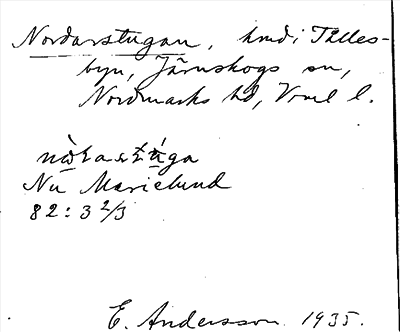 Nordarstugan, hmd i Tålles-
byn, Järnskogs sn,
Nordmarks hd, Vrml l.
Nu Marielund
82:3 2/3
E. Andersson 1935.